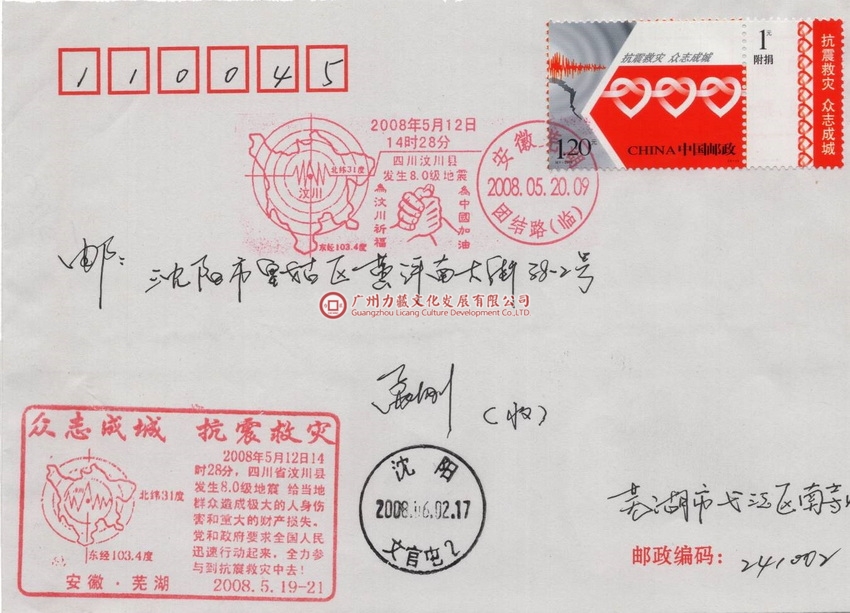 110045
抗震救灾 众志成城
1元
附捐
1.20元
CHINA 中国邮政
抗震救灾 众志成城
2008年5月12日
14时28分
四川汶川县
发生8.0级地震
北纬31度
汶川
东经103.4度
為汶川祈福
為中國加油
安徽
2008.05.20.09
团结路(临)
邮:
沈阳市皇姑区黄河南大街38-2号
广州力藏文化发展有限公司
Guangzhou Licang Culture Development Co.,LTD.
(收)
众志成城 抗震救灾
2008年5月12日14
时28分,四川省汶川县
发生8.0级地震 给当地
群众造成极大的人身伤
害和重大的财产损失。
党和政府要求全国人民
迅速行动起来,全力参
与到抗震救灾中去!
北纬31度
东经103.4度
安徽·芜湖
2008.5.19-21
沈阳
2008.06.02.17
文官屯2
芜湖市弋江区南
邮政编码: 241002